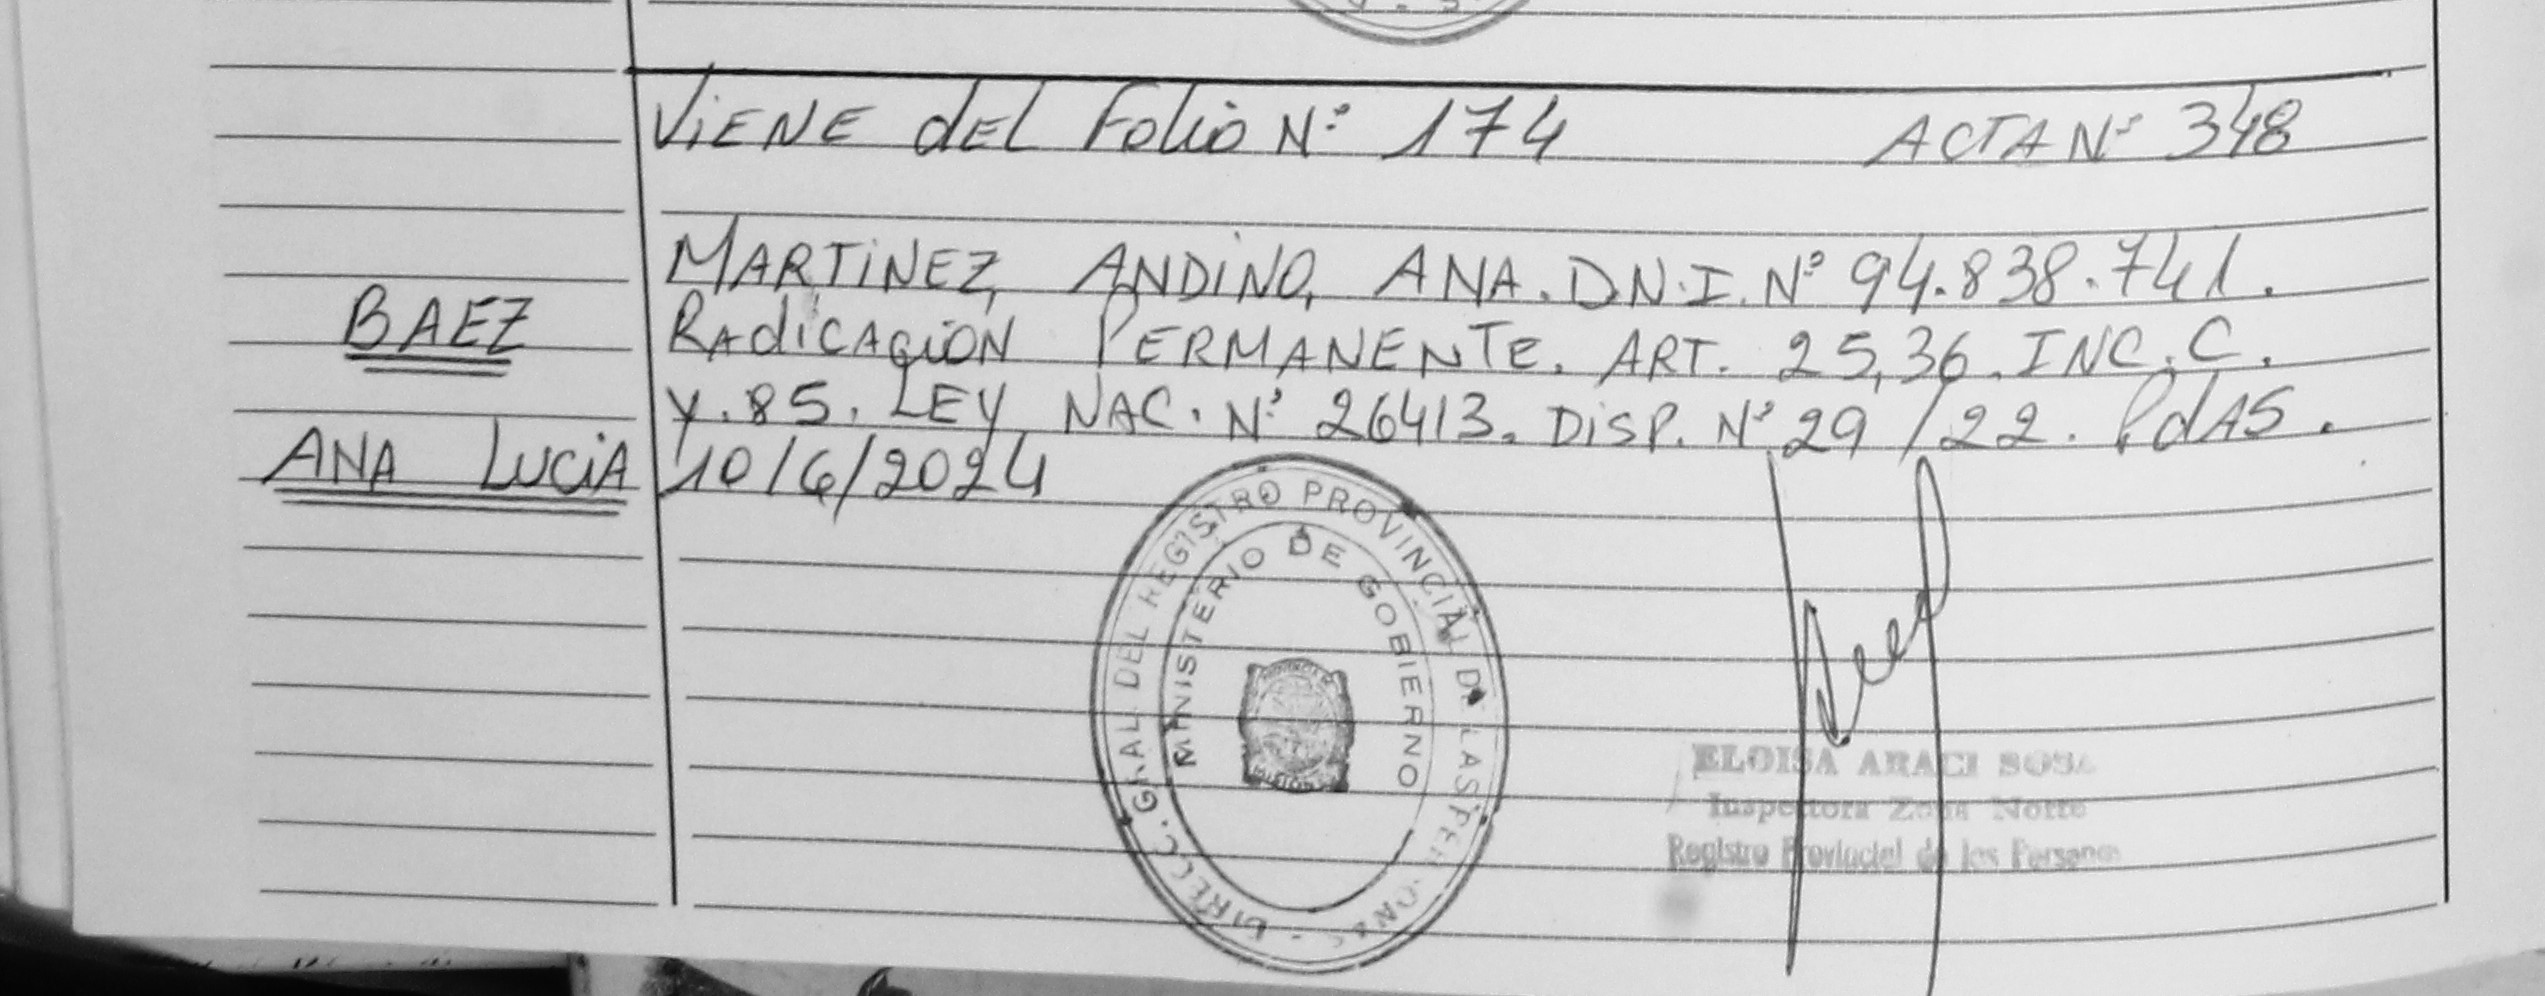 VIENE dEL Folio Nº 174 ACTA Nº 348
MARTINEZ, ANDINO, ANA. D.N.I. Nº 94.838.741.
BAEZ
RAdICACION PERMANENTE. ART. 25,36. INC. C.
Y. 85. LEY NAC. Nº 26413. DISP. Nº 29/22. PdAS.
ANA LUCIA
10/6/2024
DIRECC. GRAL. DEL REGISTRO PROVINCIAL DE LAS PERSONAS
MINISTERIO DE GOBIERNO
ELOISA ARACI SOSA
Inspectora Zona Norte
Registro Provincial de las Personas